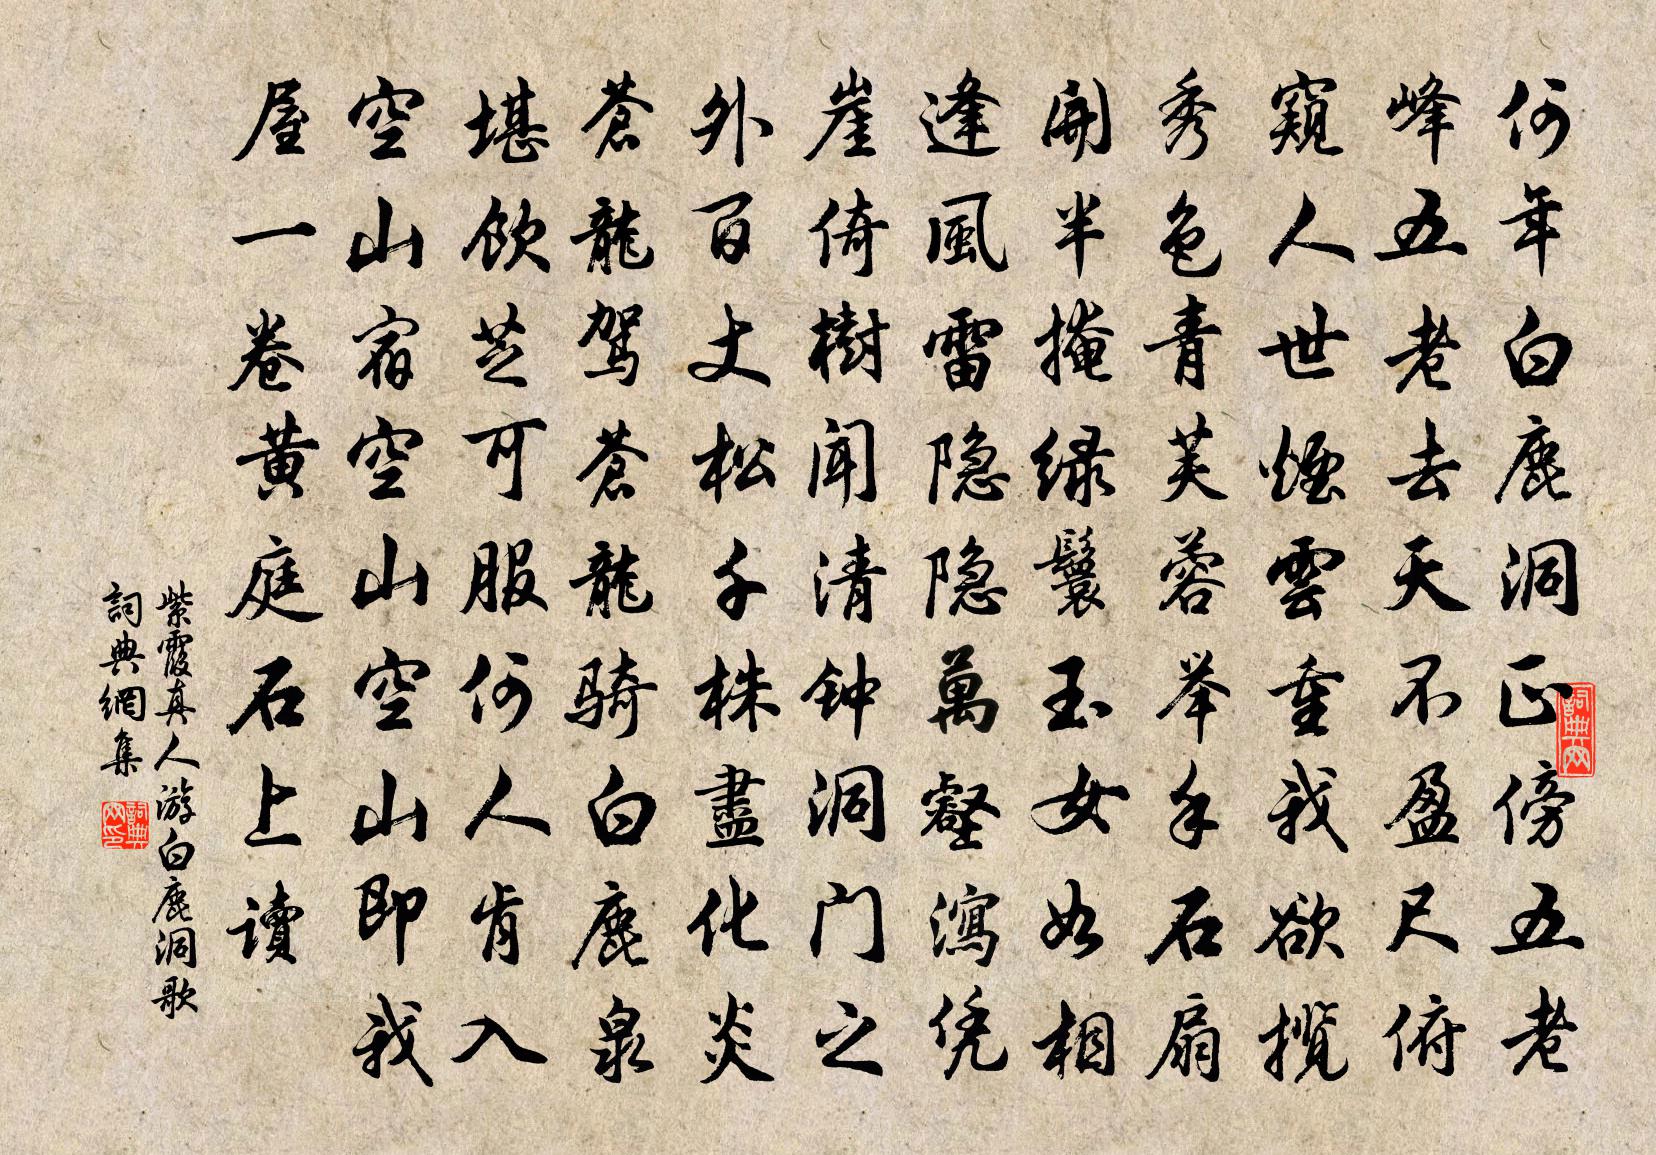 何年白鹿洞正傍五老
峰五老去天不盈尺俯
窺人世煙雲重我欲揽
秀色青芙蓉举手石扇
開半掩绿鬟玉女如相
逢風雷隐隐萬壑瀉凭
崖倚樹闻清钟洞门之
外百丈松千株盡化炎
蒼龍驾蒼龍骑白鹿泉
堪飲芝可服何人肯入
空山宿空山空山即我
屋一卷黄庭石上读
紫霞真人游白鹿洞歌
詞典網集
詞典网
詞典网印